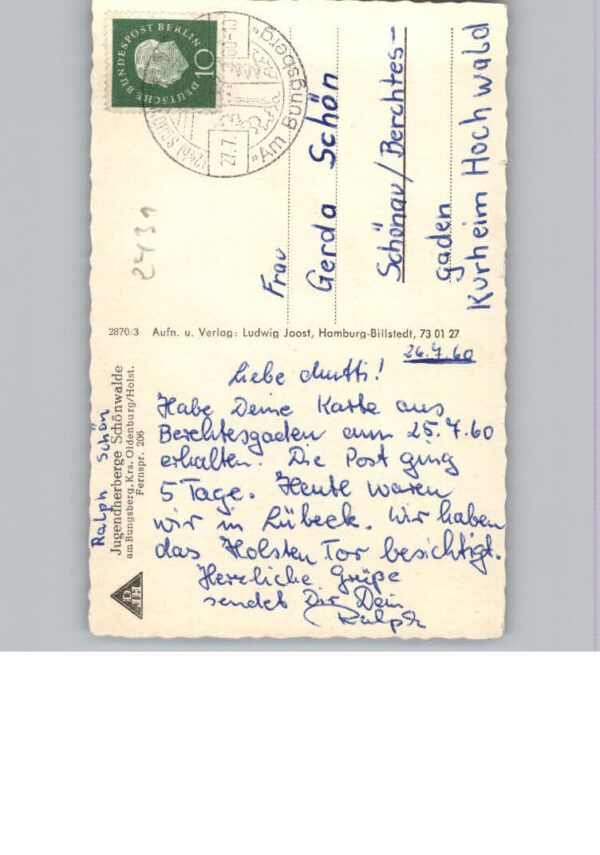 DEUTSCHE BUNDESPOST BERLIN
10
27.7.
»Am Bungsberg«
2431
Frau
Gerda Schön
Schönau/Berchtes-
gaden
Kurheim Hochwald
2870/3 Aufn. u. Verlag: Ludwig Joost, Hamburg-Billstedt, 73 01 27
Ralph Schön
Jugendherberge Schönwalde
am Bungsberg, Krs. Oldenburg/Holst.
Fernspr. 206
DJH
26.7.60
Liebe Mutti!
Habe Deine Karte aus
Berchtesgaden am 25.7.60
erhalten. Die Post ging
5 Tage. Heute waren
wir in Lübeck. Wir haben
das Holsten Tor besichtigt.
Herzliche Grüße
sendet Dir Dein
Ralph